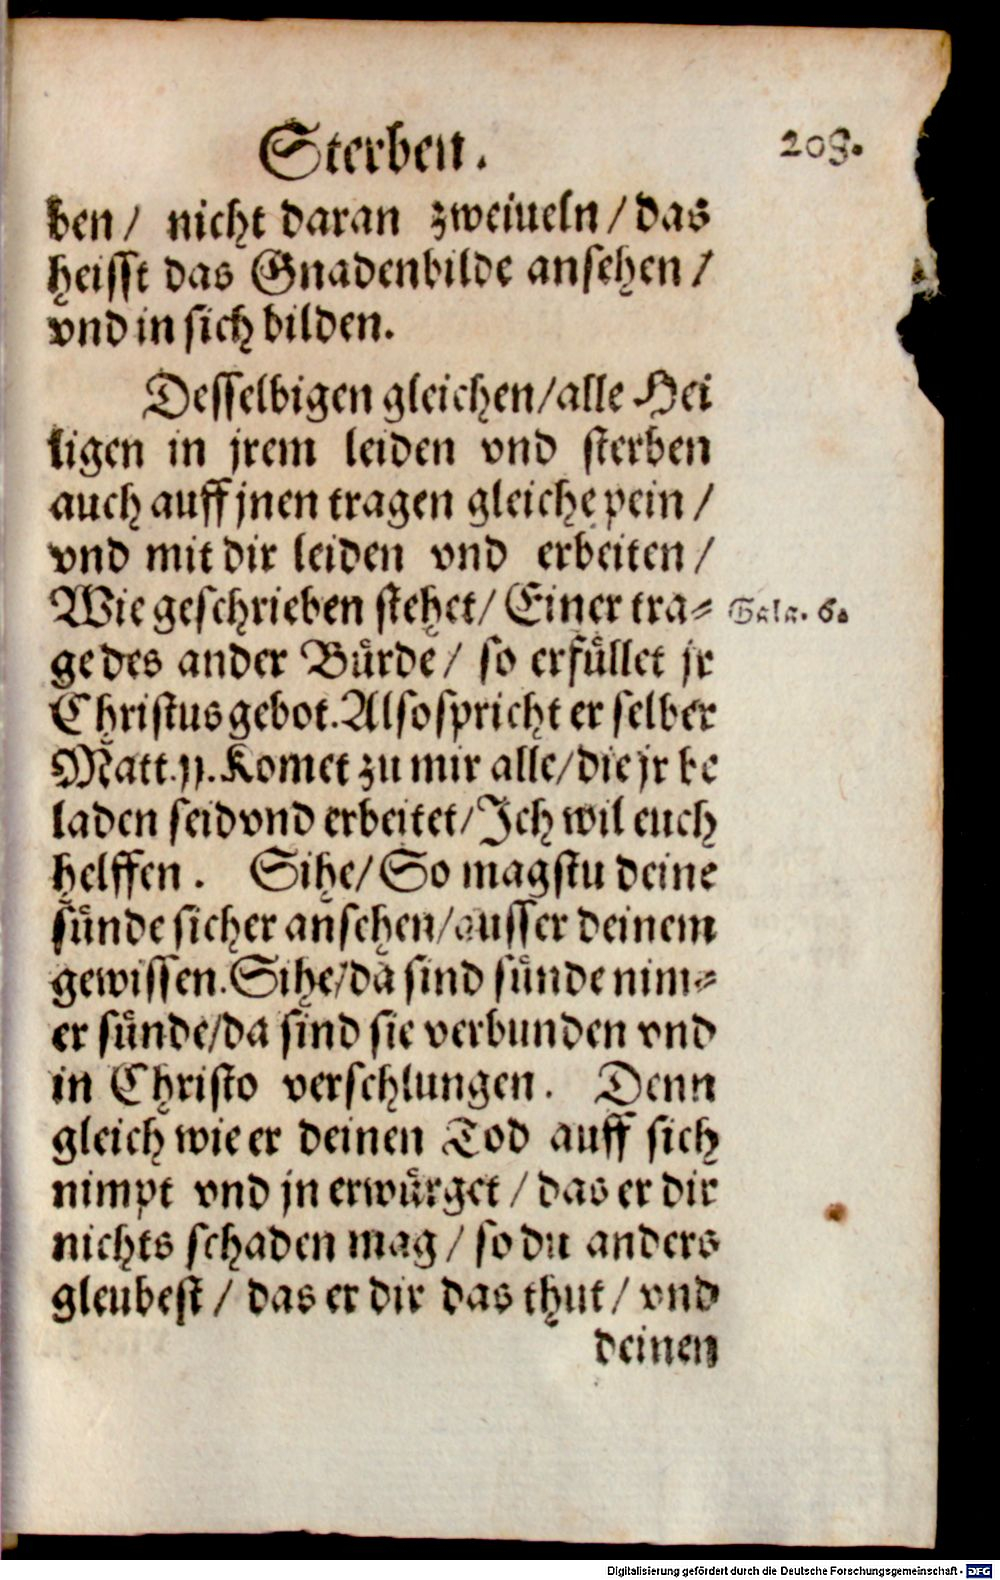 Sterben. 208.
ben/ nicht daran zweiueln/das
heisst das Gnadenbilde ansehen/
vnd in sich bilden.
Desselbigen gleichen/alle Hei
ligen in jrem leiden vnd sterben
auch auff jnen tragen gleiche pein/
vnd mit dir leiden vnd erbeiten/
Wie geschrieben stehet/ Einer tra⸗ Gala. 6.
ge des ander Bürde/ so erfüllet jr
Christus gebot. Also spricht er selber
Matt. 11. Komet zu mir alle/die jr be
laden seid vnd erbeitet/Ich wil euch
helffen. Sihe/ So magstu deine
sünde sicher ansehen/ausser deinem
gewissen. Sihe/da sind sünde nim⸗
er sünde/da sind sie verbunden vnd
in Christo verschlungen. Denn
gleich wie er deinen Tod auff sich
nimpt vnd jn erwürget/das er dir
nichts schaden mag/ so du anders
gleubest/ das er dir das thut/ vnd
deinen
Digitalisierung gefördert durch die Deutsche Forschungsgemeinschaft - DFG